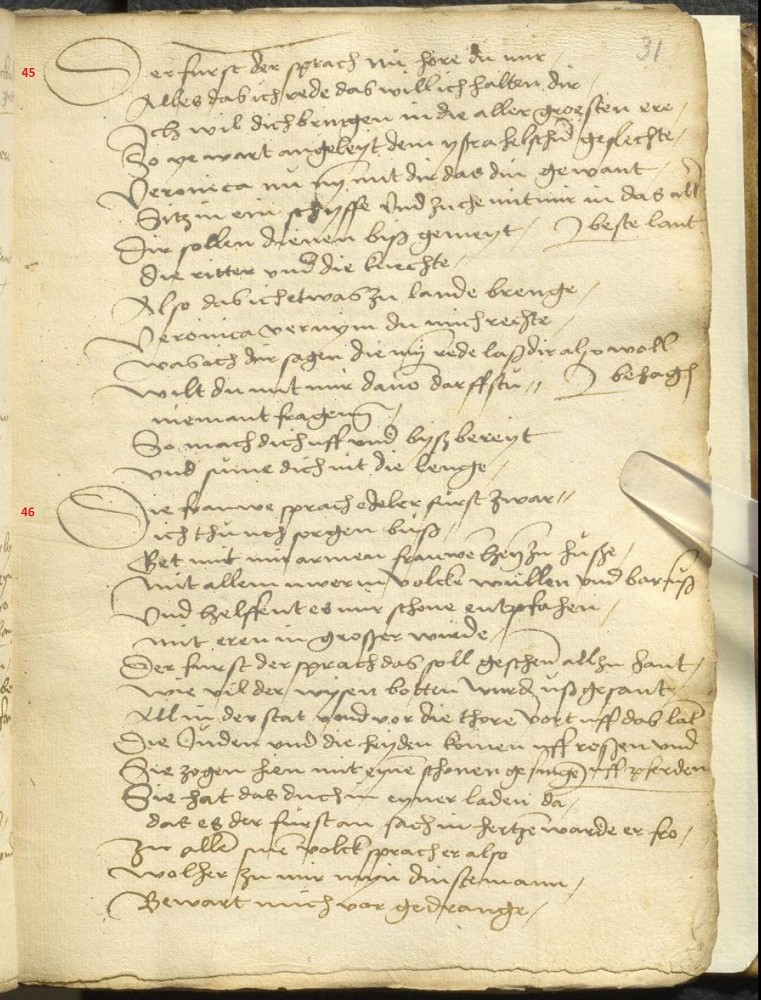 31
45
Der furst der sprach nu hore du mir /
Alles das ich rede das will ich halten dir
Ich wil dich bringen in die aller groesten ere /
So ye wart angeleyt dem ysrahelschen geslechte /
Veronica nu nym mit dir das din gewant
Sitz in ein schyffe und zuche mit mir in das all
Dir sollen dienen biß gemeyt / beste lant
die ritter und die knechte /
Also das ich etwas zu lande brenge /
Veronica vernym du mich rechte
was ich dir sagen die myn rede laß dir also woll
wilt du mit mir davon darffstu // behagen
niemant fragen /
So mach dich uff und byß bereyt
und sume dich nit die lenge /
46
Die frauwe sprach edeler furst zwar //
ich thu uch sorgen buß /
Get mit mir armen frauwe heym zu huße /
mit allem uwerm volcke wullen und barfuß
Und helffent es mir schone entpfahen /
mit eren in grosser wirde /
Der furst der sprach das soll geschehen all zu hant /
wie vil der wysen botten wurd uß gesant
All in der stat und vor die thore vort uff das lant
Die Juden und die heyden komen uff rossen und
Sie zogen hen mit eyme schonen gesinge uff pferden
Sie hat das duch in eyner laden da /
das es der furst an sach in hertzen warde er fro /
zu allem sime volck sprach er also
wol her zu mir myn dinstemann /
Bewart mich vor gedrange /